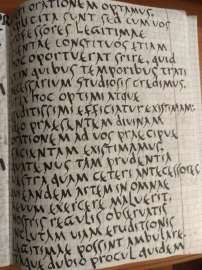 ORATIONEM OPTAMUS.
PLICITA SUNT SED CUM VOS
FESSORES LEGITIMAE
ENTIAE CONSTITUOS ETIAM
HOC OPORTUERAT SCIRE, QUID
IN QUIBUS TEMPORIBUS TRATI
CESSARIUM STUDIOSIS CREDIMUS.
HOC OPTIMI ATQUE
UDITISSIMI EFFICIATUR EXISTIMAM:
PRAESENTEM DIVINAM
ORATIONEM AD VOS PRAECIPUE
FACIENTAM EXISTIMAMUS.
QUATENUS TAM PRUDENTIA
VESTRA QUAM CETERI ANTECESSORES
EANDEM ARTEM IN OMNAE
EXERCERE MALUERIT,
NOSTRIS REGULIS OBSERVATIS
INCLUTAM VIAM ERUDITIONIS
LEGITIMAE POSSINT AMBULARE.
DUBIO PROCUL QUIDEM